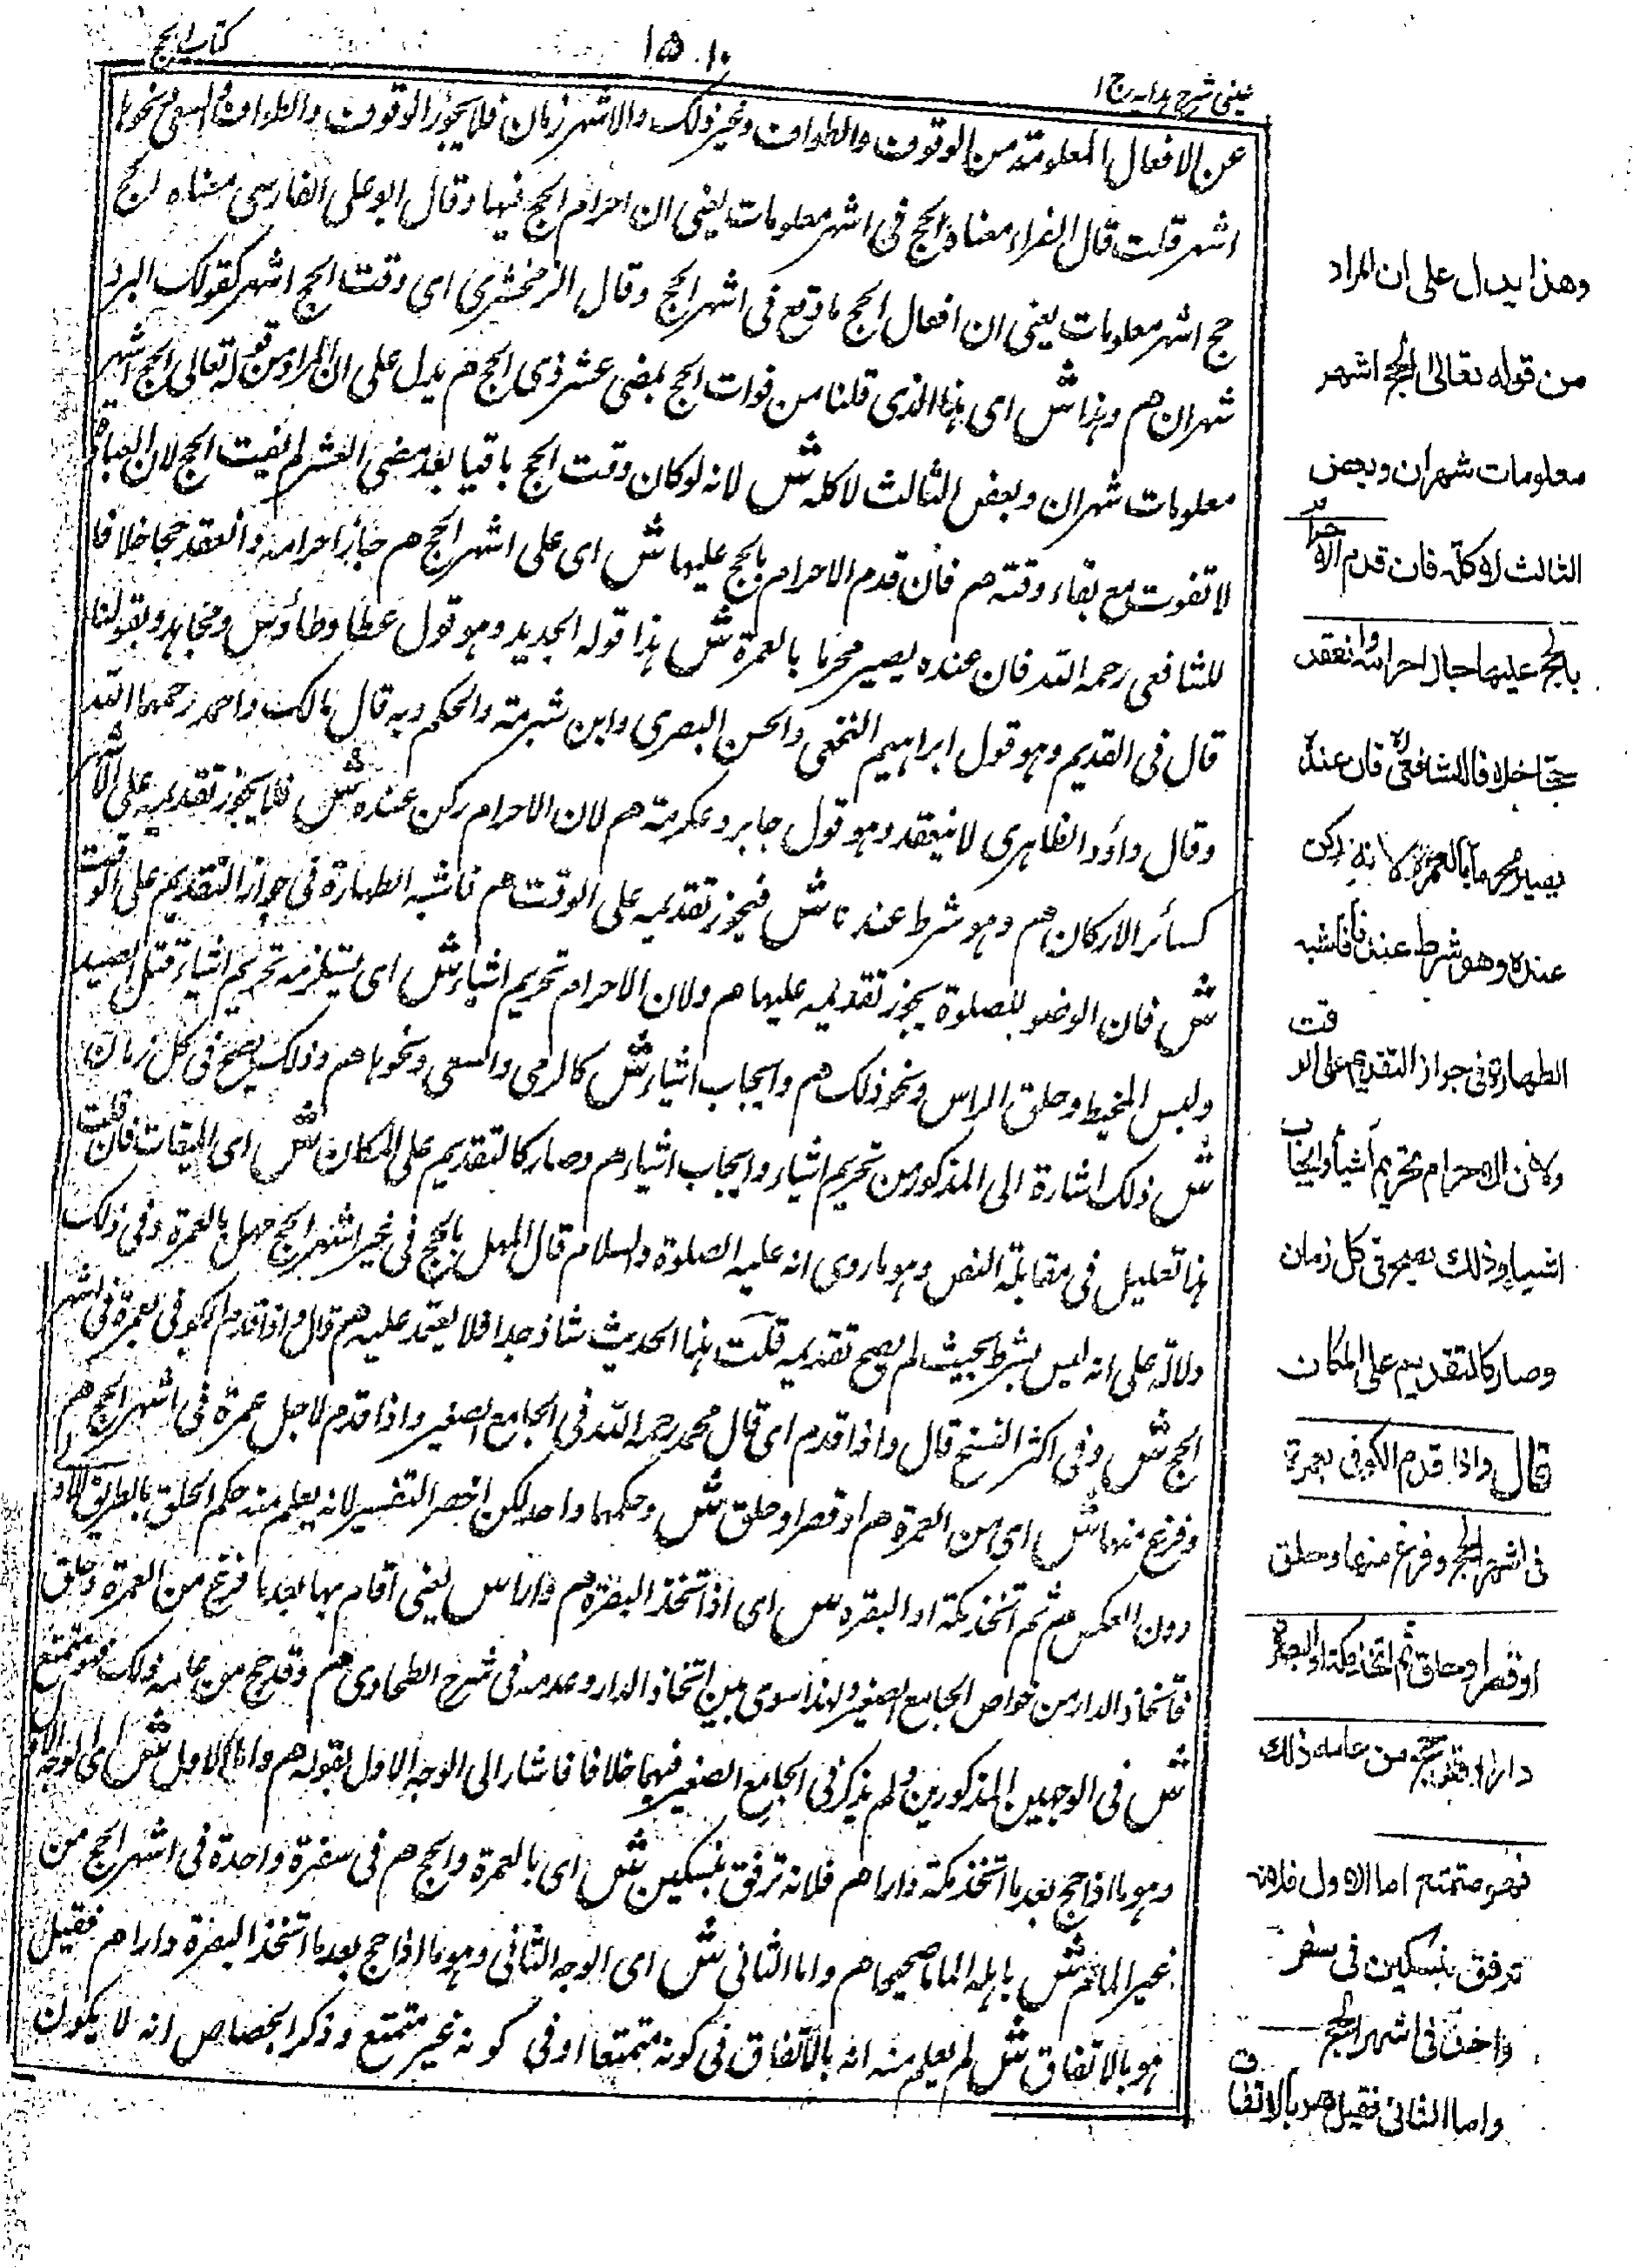 عینی شرح ہدایہ ج ۱
۱۵۱۰
کتاب الحج
عن الافعال المعلومة من الوقوف والطواف وغیر ذلک والاشہر زمان فلا یجوز الوقوف والطواف والسعی ونحوہا
اشہر قلت قال الفراء معناہ الحج فی اشہر معلومات یعنی ان احرام الحج فیہا وقال ابو علی الفارسی معناہ الحج
حج اشہر معلومات یعنی ان افعال الحج ما وقع فی اشہر الحج وقال الزمخشری ای وقت الحج اشہر کقولک البرد
شہران هم وہذا ش ای ہذا الذی قلنا من فوات الحج بمضی عشر ذی الحج هم یدل علی ان المراد من قولہ تعالی الحج اشہر
معلومات شہران وبعض الثالث لا کلہ ش لانہ لو کان وقت الحج باقیا بعد مضی العشر لم یفت الحج لان العبادة
لا تفوت مع بقاء وقتہ هم فان قدم الاحرام بالحج علیہا ش ای علی اشہر الحج هم جاز احرامہ وانعقد حجا خلافا
للشافعی رحمہ اللہ فان عندہ یصیر محرما بالعمرة ش ہذا قولہ الجدید وہو قول عطا وطاؤس ومجاہد وبقولنا
قال فی القدیم وہو قول ابراہیم النخعی والحسن البصری وابن شبرمة والحکم وبہ قال مالک واحمد رحمہما اللہ
وقال داؤد الظاہری لا ینعقد وہو قول جابر وعکرمة هم لان الاحرام رکن عندہ ش فلا یجوز تقدیمہ علی الاشہر
کسائر الارکان هم وہو شرط عندنا ش فیجوز تقدیمہ علی الوقت هم فاشبہ الطہارة فی جواز التقدیم علی الوقت
ش فان الوضو للصلوة یجوز تقدیمہ علیہا هم ولان الاحرام تحریم اشیاء ش ای یستلزمہ تحریم اشیاء قتل الصید
ولبس المخیط وحلق الراس ونحو ذلک هم وایجاب اشیاء ش کالرمی والسعی ونحوہا هم وذلک یصح فی کل زمان
ش ذلک اشارة الی المذکور من تحریم اشیاء وایجاب اشیاء هم وصار کالتقدیم علی المکان ش ای المیقات فان قلت
ہذا تعلیل فی مقابلة النص وہو ما روی انہ علیہ الصلوة والسلام قال المہل بالحج فی غیر اشہر الحج مہل بالعمرة وفی ذلک
دلالة علی انہ لیس بشرط بحیث لم یصح تقدیمہ قلت ہذا الحدیث شاذ جدا فلا یعتمد علیہ هم قال واذا قدم الکوفی بعمرة فی اشہر
الحج ش وفی اکثر النسخ قال واذا قدم ای قال محمد رحمہ اللہ فی الجامع الصغیر واذا قدم لاجل عمرة فی اشہر الحج هم
وفرغ منہا ش ای من العمرة هم او قصر او حلق ش وحکمہما واحد لکن اخصر التفسیر لانہ یعلم منہ حکم الحلق بالطریق الاولی
دون العکس هم ثم اتخذ مکة او البصرہ ش ای اذا اتخذ البصرة هم دارا ش یعنی اقام بہا بعد ما فرغ من العمرة وحلق
فاتخاذ الدار من خواص الجامع الصغیر ولہذا سوی بین اتخاذ الدار وعدمہ فی شرح الطحاوی هم وقد حج من عامہ ذلک فہو متمتع
ش فی الوجہین المذکورین ولم یذکر فی الجامع الصغیر فیہما خلافا فاشار الی الوجہ الاول بقولہ هم واما الاول ش ای الوجہ الاول
وہو ما اذا حج بعد ما اتخذ مکة دارا هم فلانہ ترفق بنسکین ش ای بالعمرة والحج هم فی سفرة واحدة فی اشہر الحج من
غیر المام ش باہلہ الماما صحیحا هم واما الثانی ش ای الوجہ الثانی وہو ما اذا حج بعد ما اتخذ البصرة دارا هم فقیل
ہو بالاتفاق ش لم یعلم منہ انہ بالاتفاق فی کونہ متمتعا او فی کونہ غیر متمتع وذکر الجصاص انہ لا یکون
وهذا یدل علی ان المراد
من قوله تعالی الحج اشهر
معلومات شهران وبعض
الثالث لا کله فان قدم الاحرام
بالحج علیها جاز احرامه وانعقد
حجا خلافا للشافعی فان عنده
یصیر محرما بالعمرة لانه رکن
عنده وهو شرط عندنا فاشبه
الطهارة فی جواز التقدیم علی الوقت
ولان الاحرام تحریم اشیاء وایجاب
اشیاء وذلک یصح فی کل زمان
وصار کالتقدیم علی المکان
قال واذا قدم الکوفی بعمرة
فی اشهر الحج وفرغ منها وحلق
او قصر ثم اتخذ مکة او البصرة
دارا وقد حج من عامه ذلک
فهو متمتع اما الاول فلانه
ترفق بنسکین فی سفر
واحد فی اشهر الحج
واما الثانی فقیل هو بالاتفاق